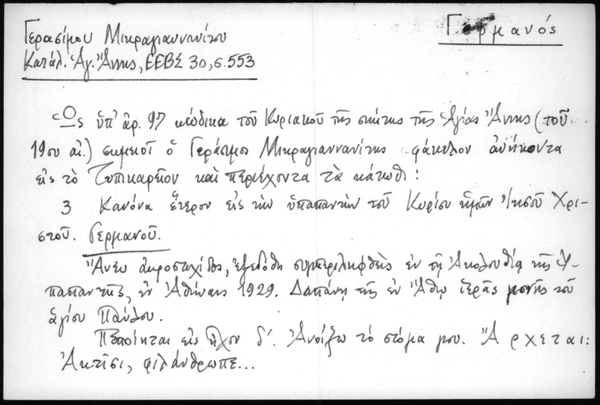 Γερμανός
Γερασίμου Μικραγιαννανίτου
Κατάλ. Ἁγ. Ἄννης, ΕΕΒΣ 30, σ. 553
Ὡς ὑπ' ἀρ. 97 κώδικα τοῦ Κυριακοῦ τῆς σκήτης τῆς Ἁγίας Ἄννης (τοῦ
19ου αἰ.) σημειοῖ ὁ Γεράσιμος Μικραγιαννανίτης φάκελον ἀνήκοντα
εἰς τὸ Τυπικαρεῖον καὶ περιέχοντα τὰ κάτωθι:
3 Κανόνα ἕτερον εἰς τὴν ὑπαπαντὴν τοῦ Κυρίου ἡμῶν Ἰησοῦ Χρι-
στοῦ. Γερμανοῦ.
Ἄνευ ἀκροστιχίδος, ἐξεδόθη συμπεριληφθεὶς ἐν τῇ Ἀκολουθίᾳ τῆς Ὑ-
παπαντῆς, ἐν Ἀθήναις 1929. Δαπάνῃ τῆς ἐν Ἄθῳ ἱερᾶς μονῆς τοῦ
Ἁγίου Παύλου.
Πεποίηται εἰς ἦχον δ΄. Ἀνοίξω τὸ στόμα μου. Ἄρχεται:
Ἄκτισε, φιλάνθρωπε...